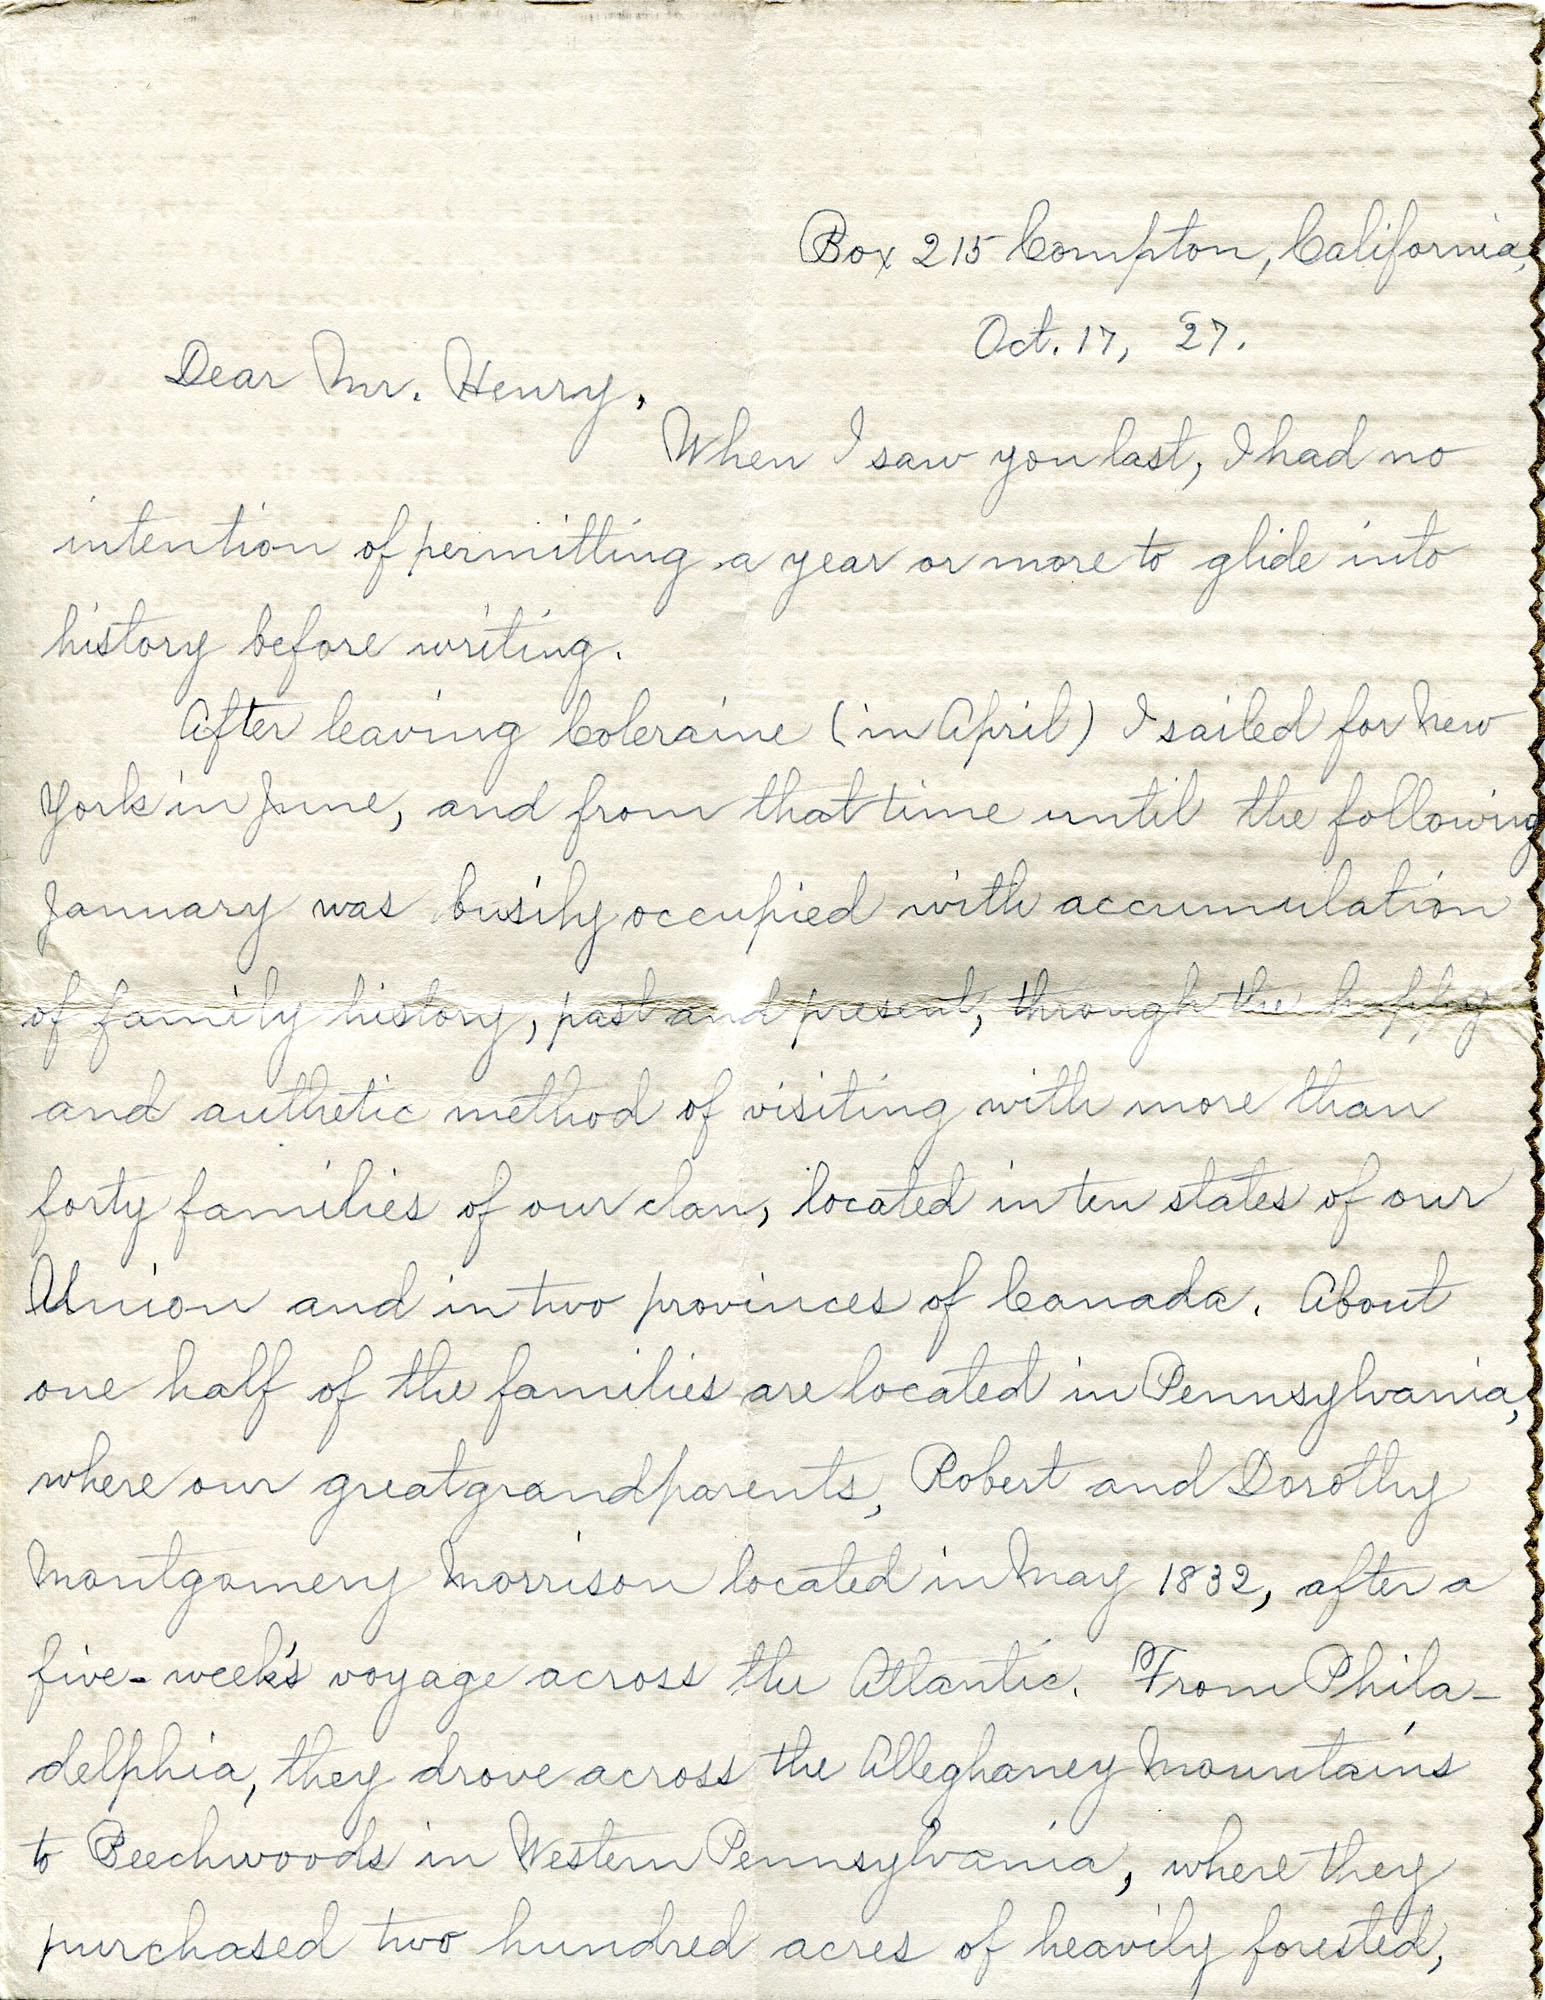 Box 215 Compton, California,
Oct. 17, '27.
Dear Mr. Henry,
When I saw you last, I had no
intention of permitting a year or more to glide into
history before writing.
After leaving Coleraine (in April) I sailed for New
York in June, and from that time until the following
January was busily occupied with accumulation
of family history, past and present, through the happy
and authetic method of visiting with more than
forty families of our clan, located in ten states of our
Union and in two provinces of Canada. About
one half of the families are located in Pennsylvania,
where our greatgrandparents, Robert and Dorothy
Montgomery Morrison located in May 1832, after a
five-week's voyage across the Atlantic. From Phila-
delphia, they drove across the Alleghaney Mountains
to Beechwoods in Western Pennsylvania, where they
purchased two hundred acres of heavily forested,